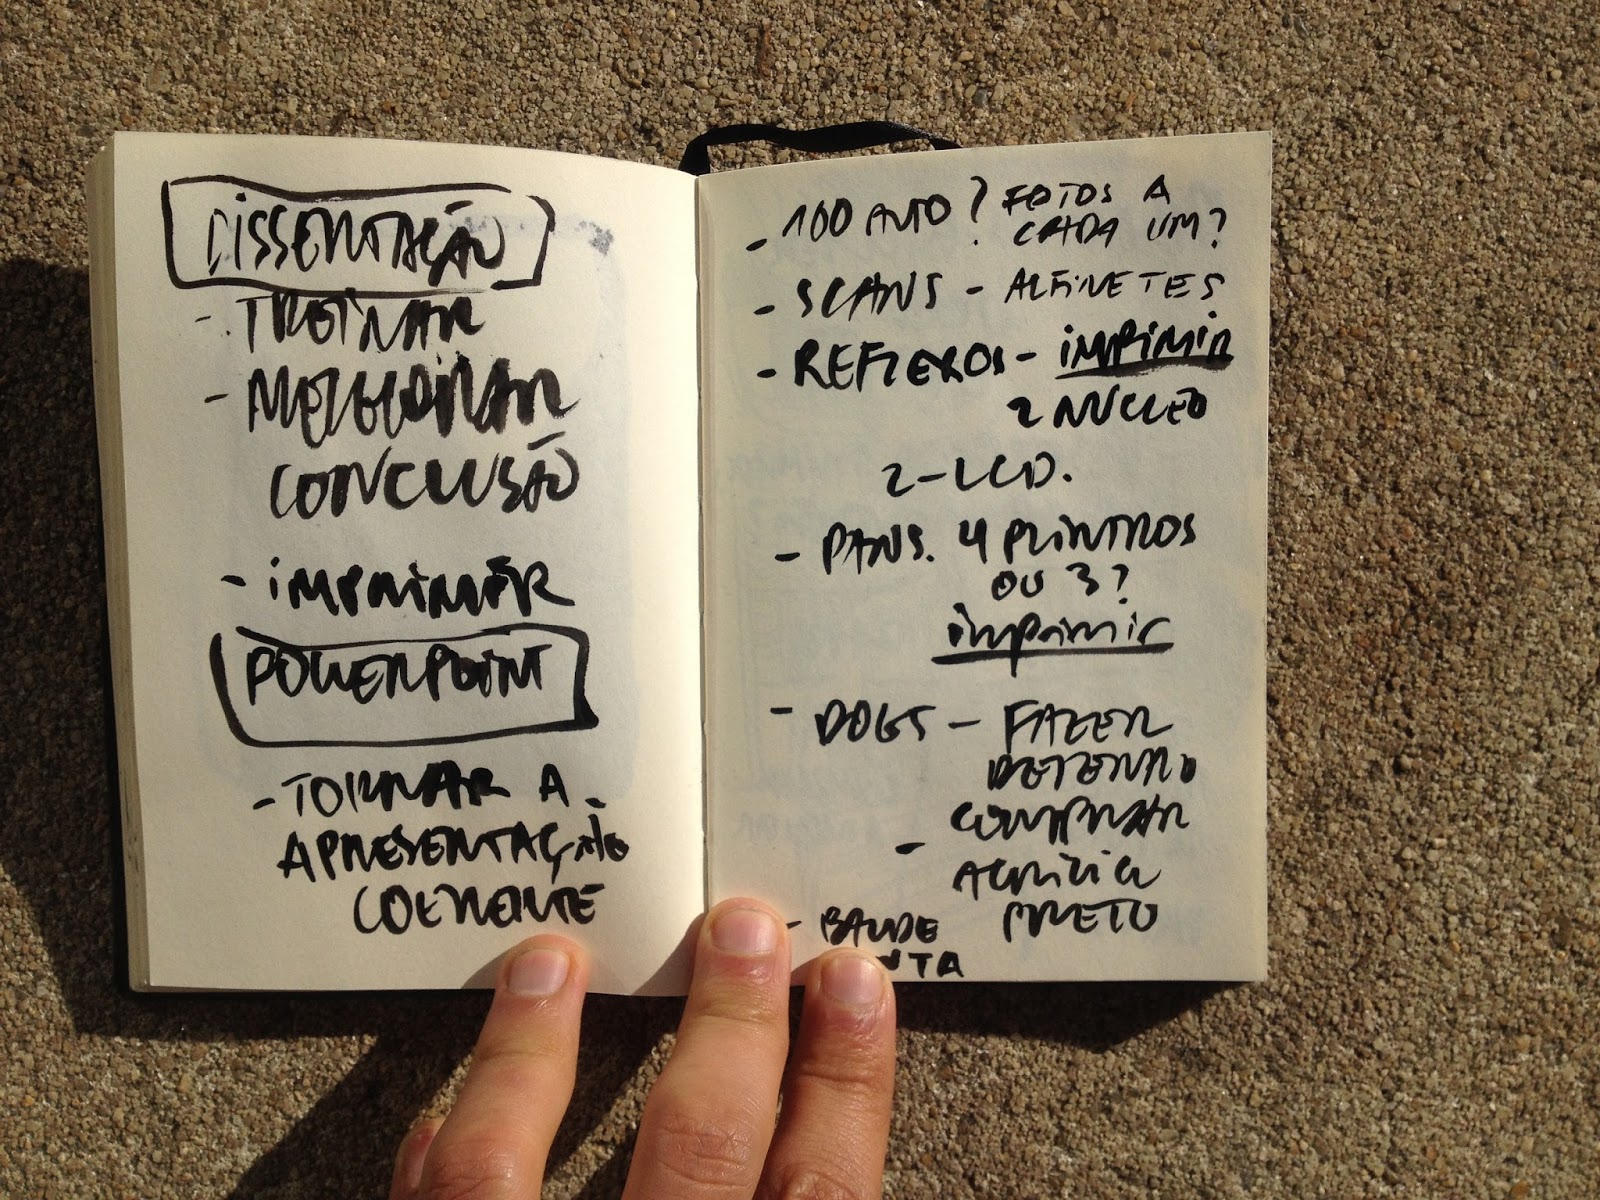 DISSERTAÇÃO
- TREINAR
- MELHORAR
CONCLUSÃO
- IMPRIMIR
POWERPOINT
- TORNAR A
APRESENTAÇÃO
COERENTE
- 100 AUTO? FOTOS A
CADA UM?
- SCANS - ALFINETES
- REFLEXOS - IMPRIMIR
2 NUCLEO
2-LCD.
- PANS. 4 PLINTROS
OU 3?
imprimir
- DOGS - FAZER
DESENHO
- COMPRAR
ACRILICO
PRETO
- BALDE